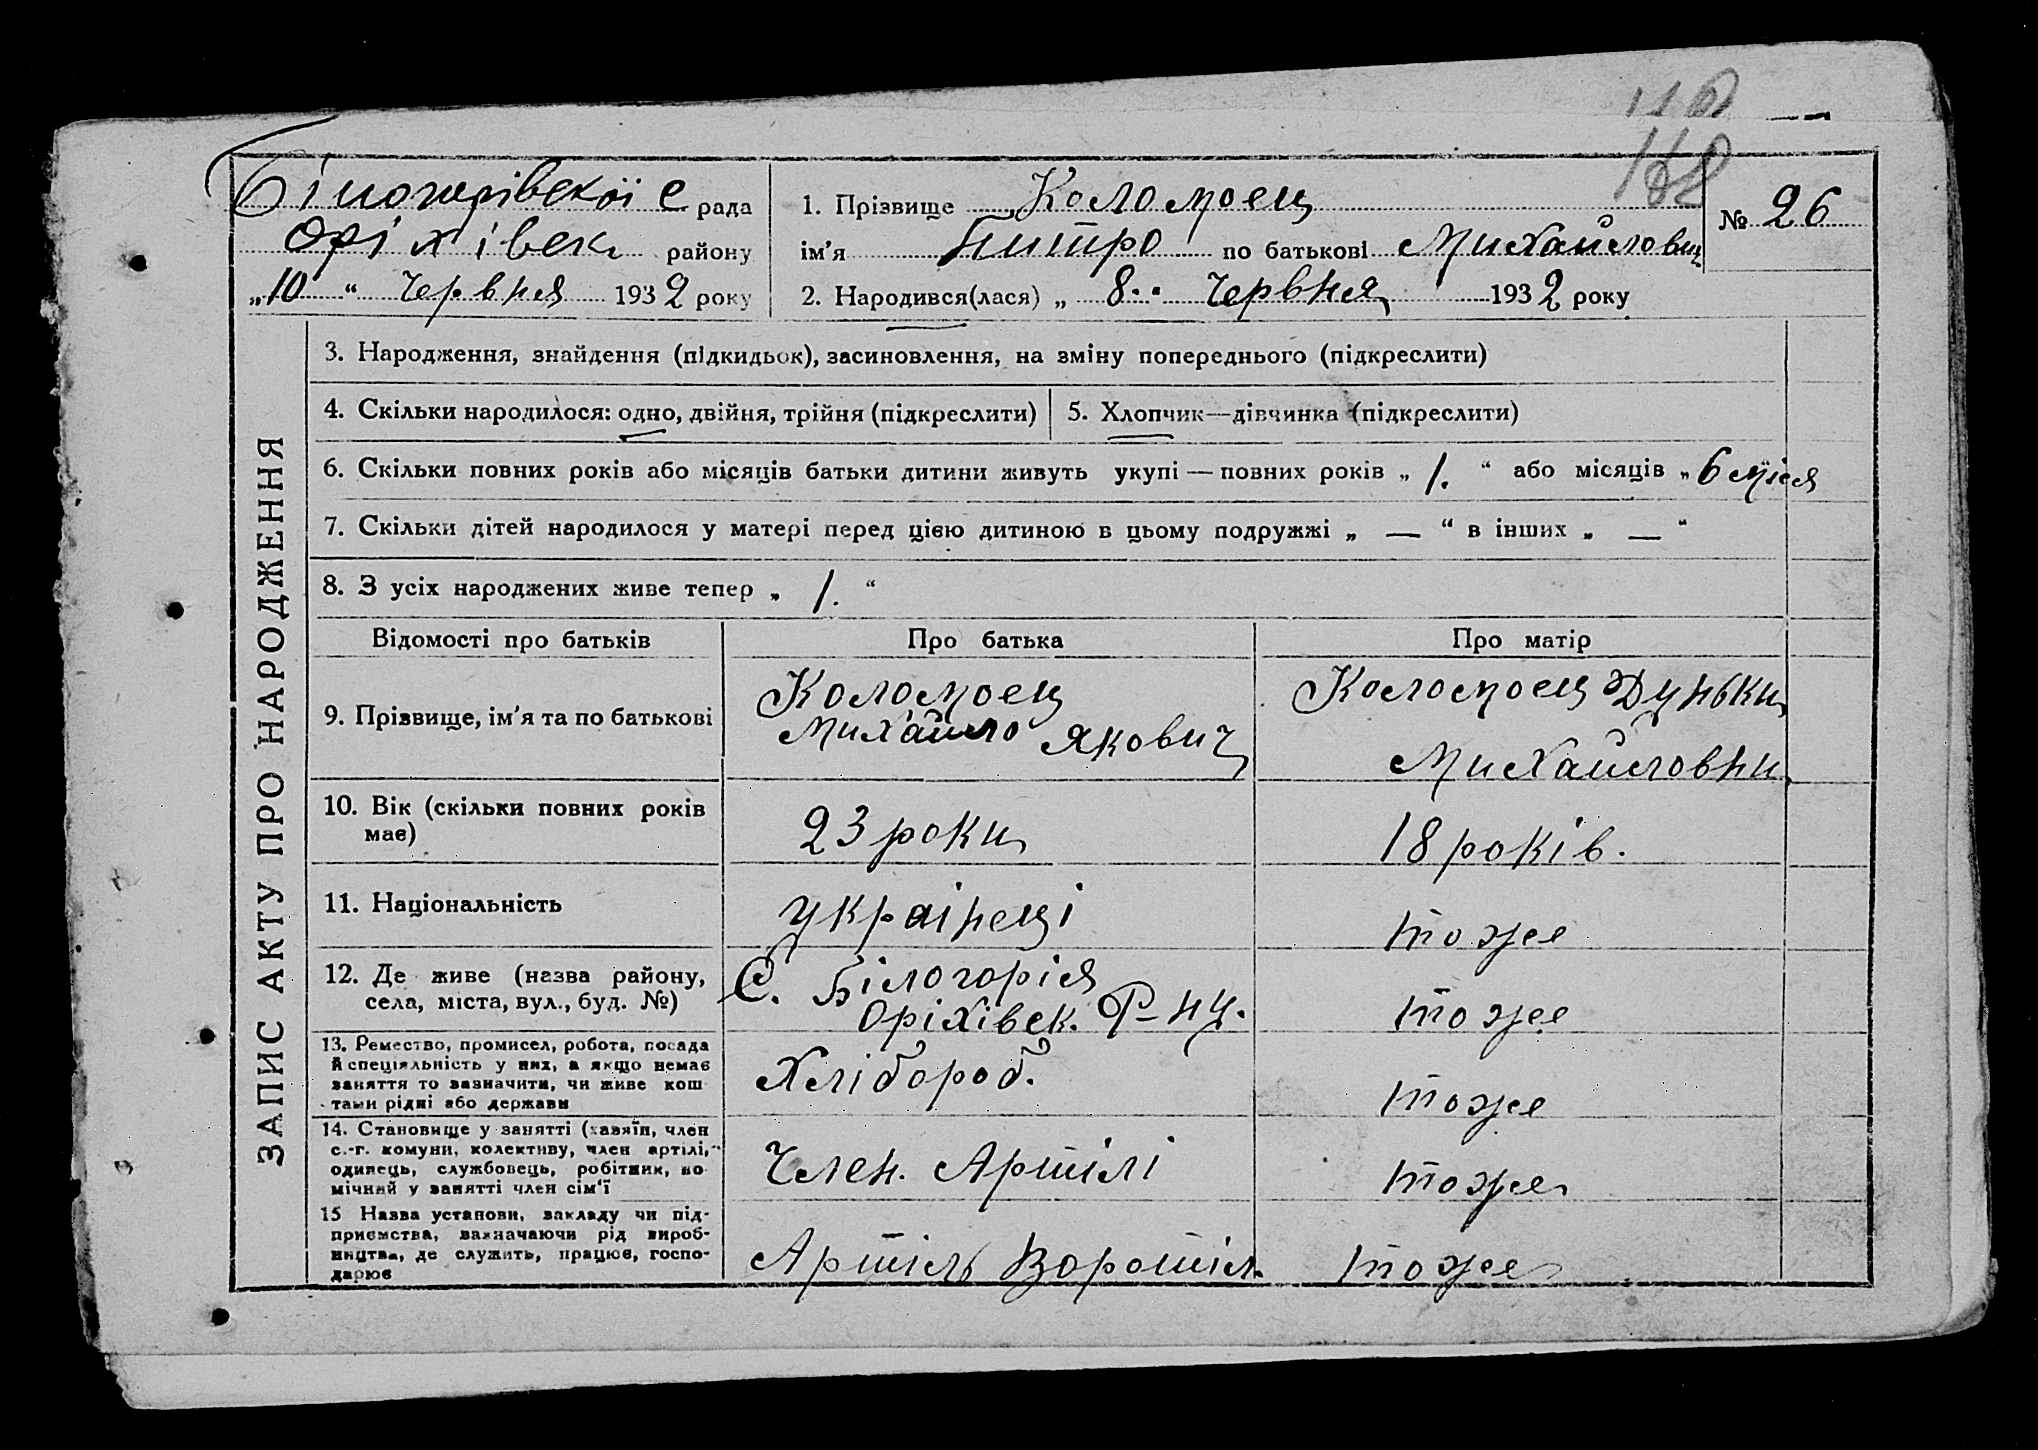 118
118
Білогорівської с рада
Оріхівськ району
„10“ Червня 1932 року
1. Прізвище Коломоец
ім'я по батькові Михайлович
№ 26
2. Народився(лася) „ 8 “ Червня 1932 року
ЗАПИС АКТУ ПРО НАРОДЖЕННЯ
3. Народження, знайдення (підкидьок), засиновлення, на зміну попереднього (підкреслити)
4. Скільки народилося: одно, двійня, трійня (підкреслити)
5. Хлопчик—дівчинка (підкреслити)
6. Скільки повних років або місяців батьки дитини живуть укупі — повних років „ 1. “ або місяців „ 6 міся
7. Скільки дітей народилося у матері перед цією дитиною в цьому подружжі „ — “ в інших „ — “
8. З усіх народжених живе тепер „ 1. “
Відомості про батьків Про батька Про матір
9. Прізвище, ім'я та по батькові
Коломоец
Михайло Якович
Коломоец Дуньки
Михайловни
10. Вік (скільки повних років
має)
23 роки
18 років.
11. Національність
українеці
тоже
12. Де живе (назва району,
села, міста, вул., буд. №)
С. Білогорія
Оріхівск. Р-ну.
тоже
13. Ремество, промисел, робота, посада
й спеціяльність у них, а якщо немає
заняття то зазначити, чи живе кош-
тами рідні або держави
Хлібороб.
тоже
14. Становище у занятті (хазяїн, член
с.-г. комуни, колективу, член артілі,
одинець, службовець, робітник, по-
мічний у занятті член сім'ї
Член. Артілі
тоже
15 Назва установи, закладу чи під-
приємства, вазначаючи рід вироб-
ництва, де служить, працює, госпо-
дарює
Артіль Ворошіл.
тоже